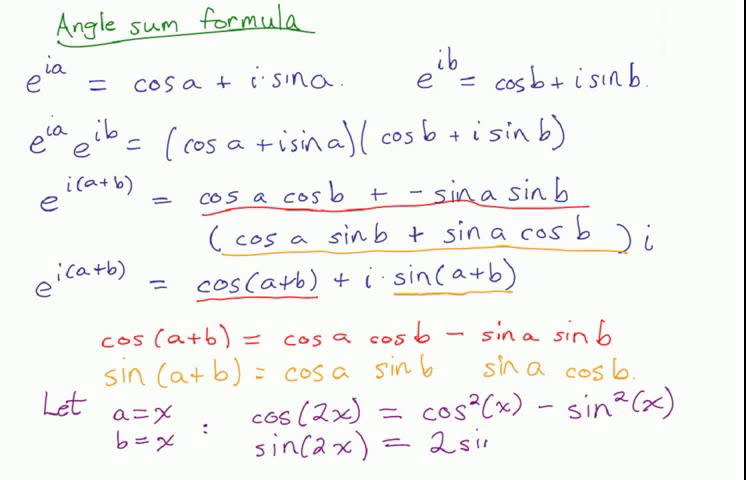 Angle sum formula
e^{ia} = cos a + i·sin a. e^{ib} = cos b + i sin b.
e^{ia} e^{ib} = (cos a + i sin a)(cos b + i sin b)
e^{i(a+b)} = cos a cos b + - sin a sin b
(cos a sin b + sin a cos b) i
e^{i(a+b)} = cos(a+b) + i·sin(a+b)
cos(a+b) = cos a cos b - sin a sin b
sin(a+b) = cos a sin b sin a cos b.
Let a=x : cos(2x) = cos²(x) - sin²(x)
b=x sin(2x) = 2si